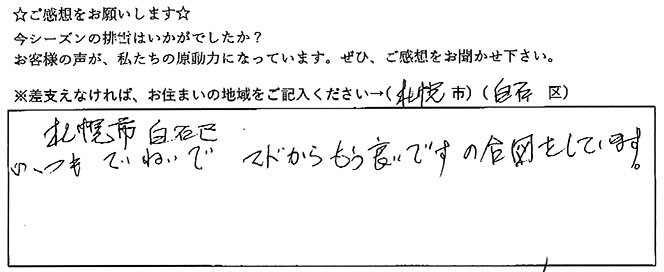 ☆ご感想をお願いします☆
今シーズンの排雪はいかがでしたか？
お客様の声が、私たちの原動力になっています。ぜひ、ご感想をお聞かせ下さい。
※差支えなければ、お住まいの地域をご記入ください→(札幌 市) (白石 区)
札幌市 白石区
いつも ていねいで マドからもう良いですの合図をしています。